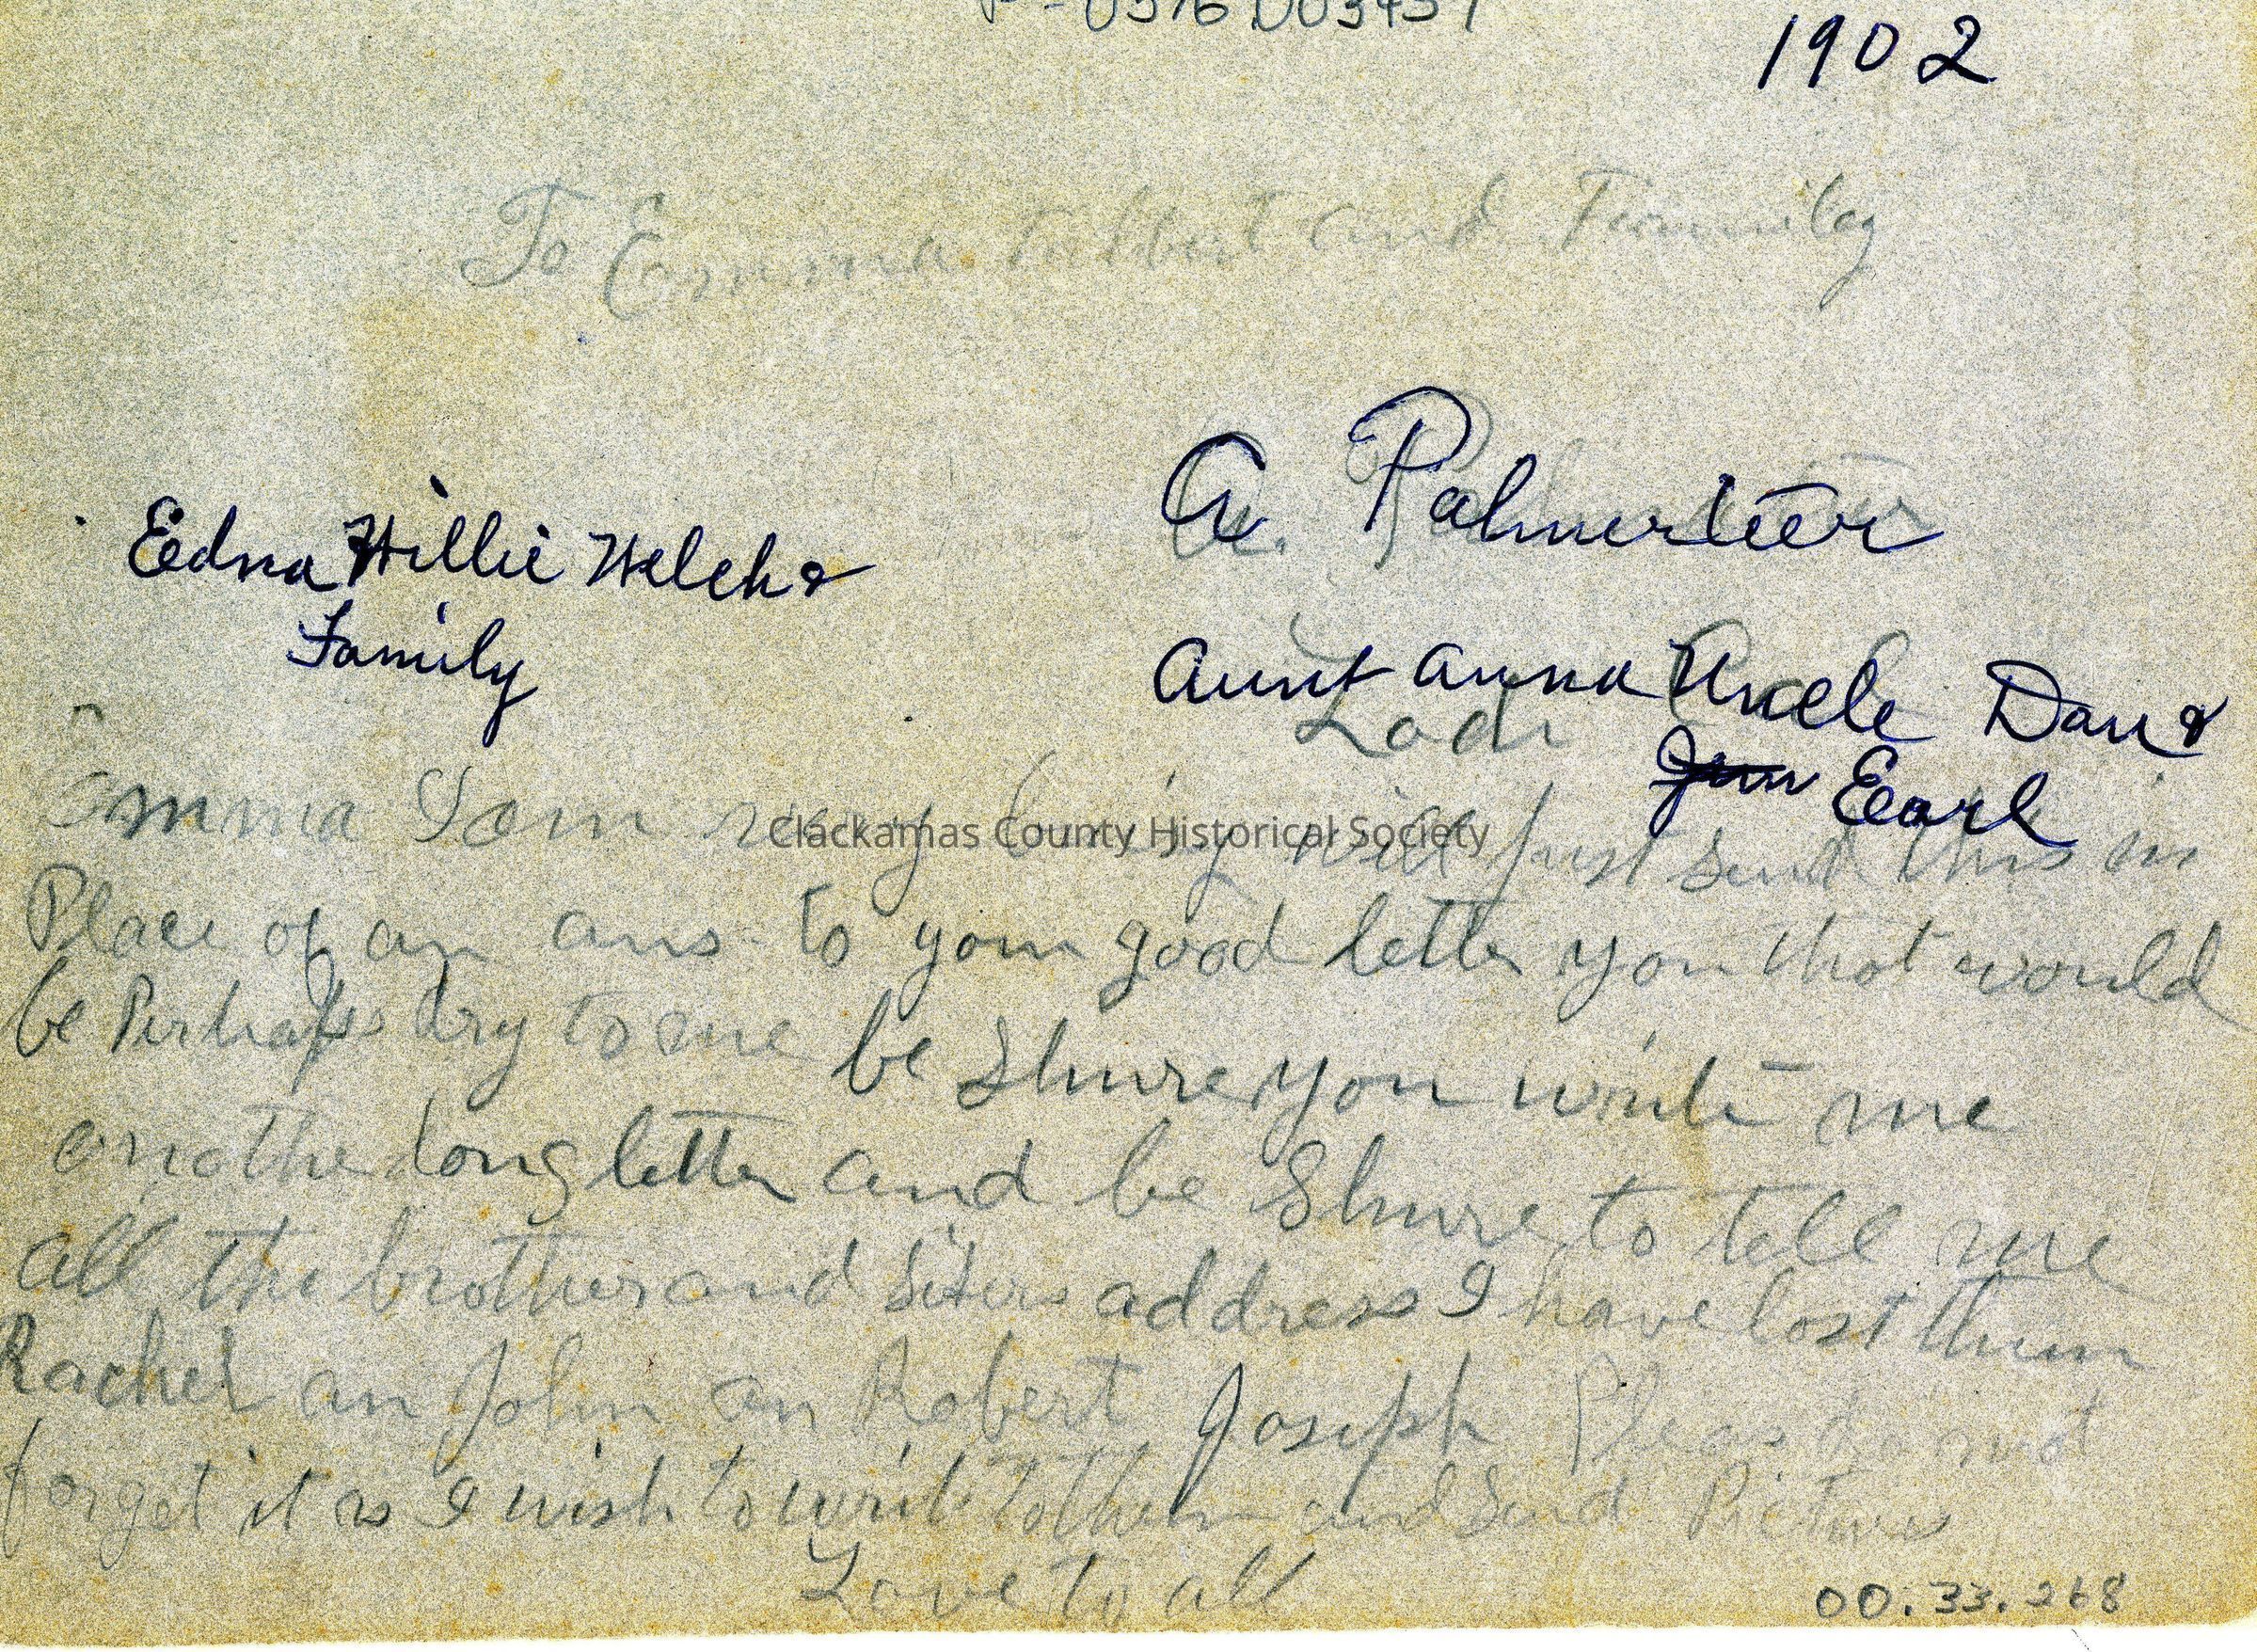 1902
To Emma Albert and Family
A. Palmerteer
Edna Willie Welch &
Family
Aunt Anna Uncle Dan &
Lodi
Earl
Emma I am very busy will just send this in
Place of an ans to your good letter you that would
be Perhaps try to me be Shure you write me
anothe long letter and be Shure to tell me
all the brother and Sisters address I have lost them
Rachel an John an Robert Joseph Pleas do not
forget it as I wish to write to them and Send Picture
Love to all
00.33.268
Clackamas County Historical Society